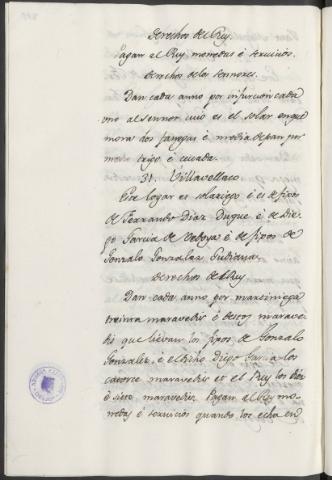 Derechos del Rey.
Pagan al Rey monedas é servicios.
Derechos de los sennores.
Dan cada anno por infurcion cada
uno al sennor cuio es el solar en que
mora dos fanegas é media de pan por
meno trigo é cevada.
31. Villavellaco
Este logar es solariego é es de fijos
de Ferrando Diaz Duque é de Die-
go Garcia de Vedoya é de fijos de
Gonzalo Gonzalez
Derechos del Rey
Dan cada anno por marciniega
treinta maravedis é destos marave-
dis que lievan los fijos de Gonzalo
Gonzalez, é el dicho Diego Garcia los
catorce maravedis et el Rey los diez
é siete maravedis. Pagan al Rey mo-
nedas é servicios quando los echa en